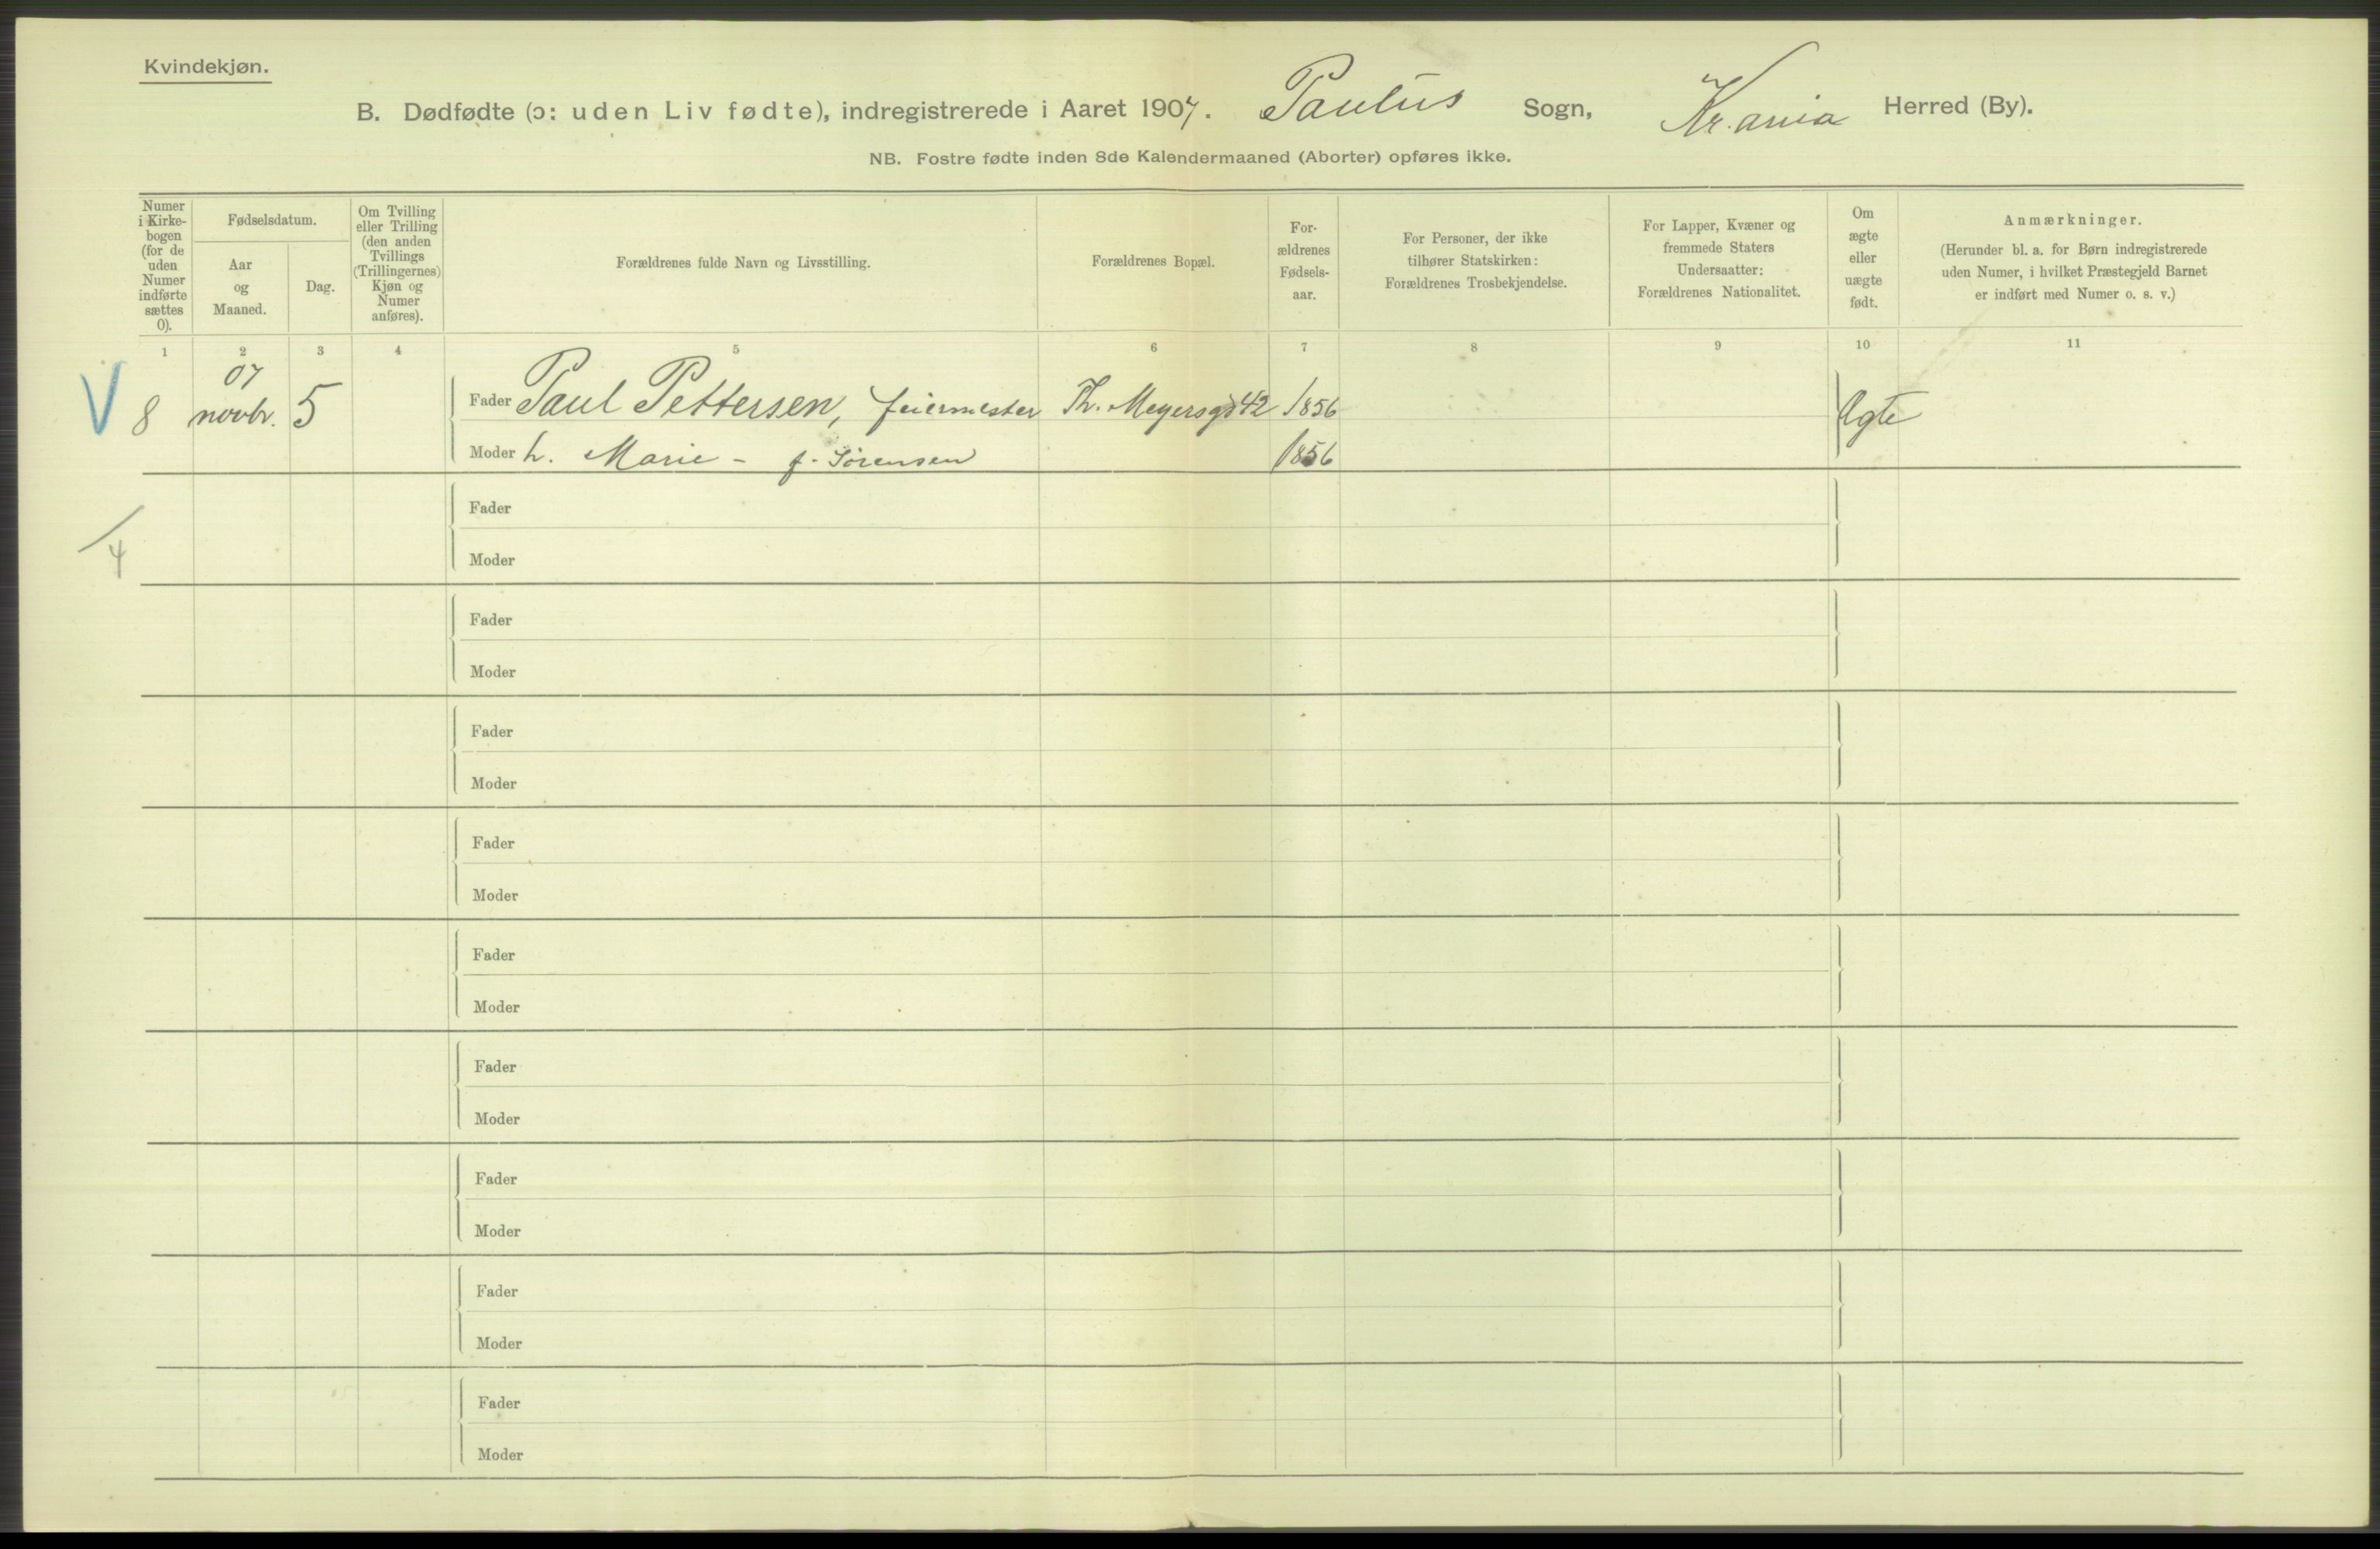 Kvindekjøn.
B. Dødfødte (ɔ: uden Liv fødte), indregistrerede i Aaret 1907. Paulus Sogn, Kr.ania Herred (By).
NB. Fostre fødte inden 8de Kalendermaaned (Aborter) opføres ikke.
Numer i Kirke-bogen (for de uden Numer indførte sættes 0).
Fødselsdatum.
Aar og Maaned.
Dag.
Om Tvilling eller Trilling (den anden Tvillings (Trillingernes) Kjøn og Numer anføres).
Forældrenes fulde Navn og Livsstilling.
Forældrenes Bopæl.
For-ældrenes Fødsels-aar.
For Personer, der ikke tilhører Statskirken: Forældrenes Trosbekjendelse.
For Lapper, Kvæner og fremmede Staters Undersaatter: Forældrenes Nationalitet.
Om ægte eller uægte født.
Anmærkninger.
(Herunder bl. a. for Børn indregistrerede uden Numer, i hvilket Præstegjeld Barnet er indført med Numer o. s. v.)
1 2 3 4 5 6 7 8 9 10 11
V 8 07 novbr. 5 Fader Paul Pettersen, feiermester Th. Meyersgd 42 1856 Ægte
Moder h. Marie - f. Sørensen 1856
4
Fader
Moder
Fader
Moder
Fader
Moder
Fader
Moder
Fader
Moder
Fader
Moder
Fader
Moder
Fader
Moder
Fader
Moder